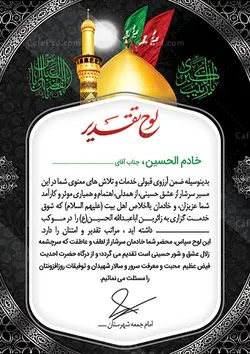 لوح تقدیر
خادم الحسین، جناب آقای
بدینوسیله ضمن آرزوی قبولی خدمات و تلاش های معنوی شما در این
مسیر سرشار از عشق حسینی، از همدلی، اهتمام و همیاری موثر و کارآمد
شما عزیزان، و خادمان بااخلاص اهل بیت (علیهم السلام) که شوق
خدمت گزاری به زائرین اباعبدالله الحسین(ع) را در موکب
داشته اید ، مراتب تقدیر و امتنان را دارد.
این لوح سپاس، محضر شما خادمان سرشار از لطف و عاطفت که سرچشمه
زلال عشق و شور حسینی است تقدیم می گردد؛ و از درگاه حضرت احدیت
فیض عظیم محبت و معرفت سرور و سالار شهیدان و توفیقات روزافزونتان
را مسئلت می نمائیم.
امام جمعه شهرستان